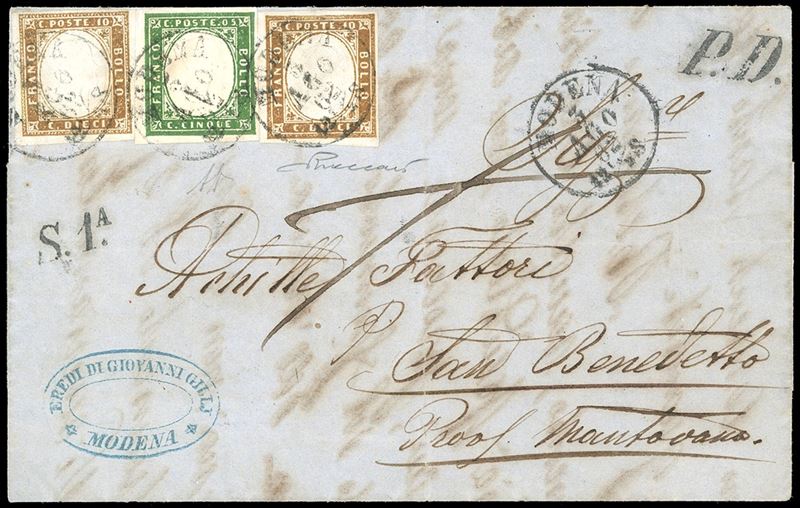 C. POSTE. 10
FRANCO
BOLLO
C. DIECI
C. POSTE. 05
FRANCO
BOLLO
C. CINQUE
C. POSTE. 10
FRANCO
BOLLO
C. DIECI
P.D.
MODENA
AGO
S. 1.A
Achille Fattori
P
San Benedetto
Prov. Mantovano.
EREDI DI GIOVANNI GILLI
MODENA